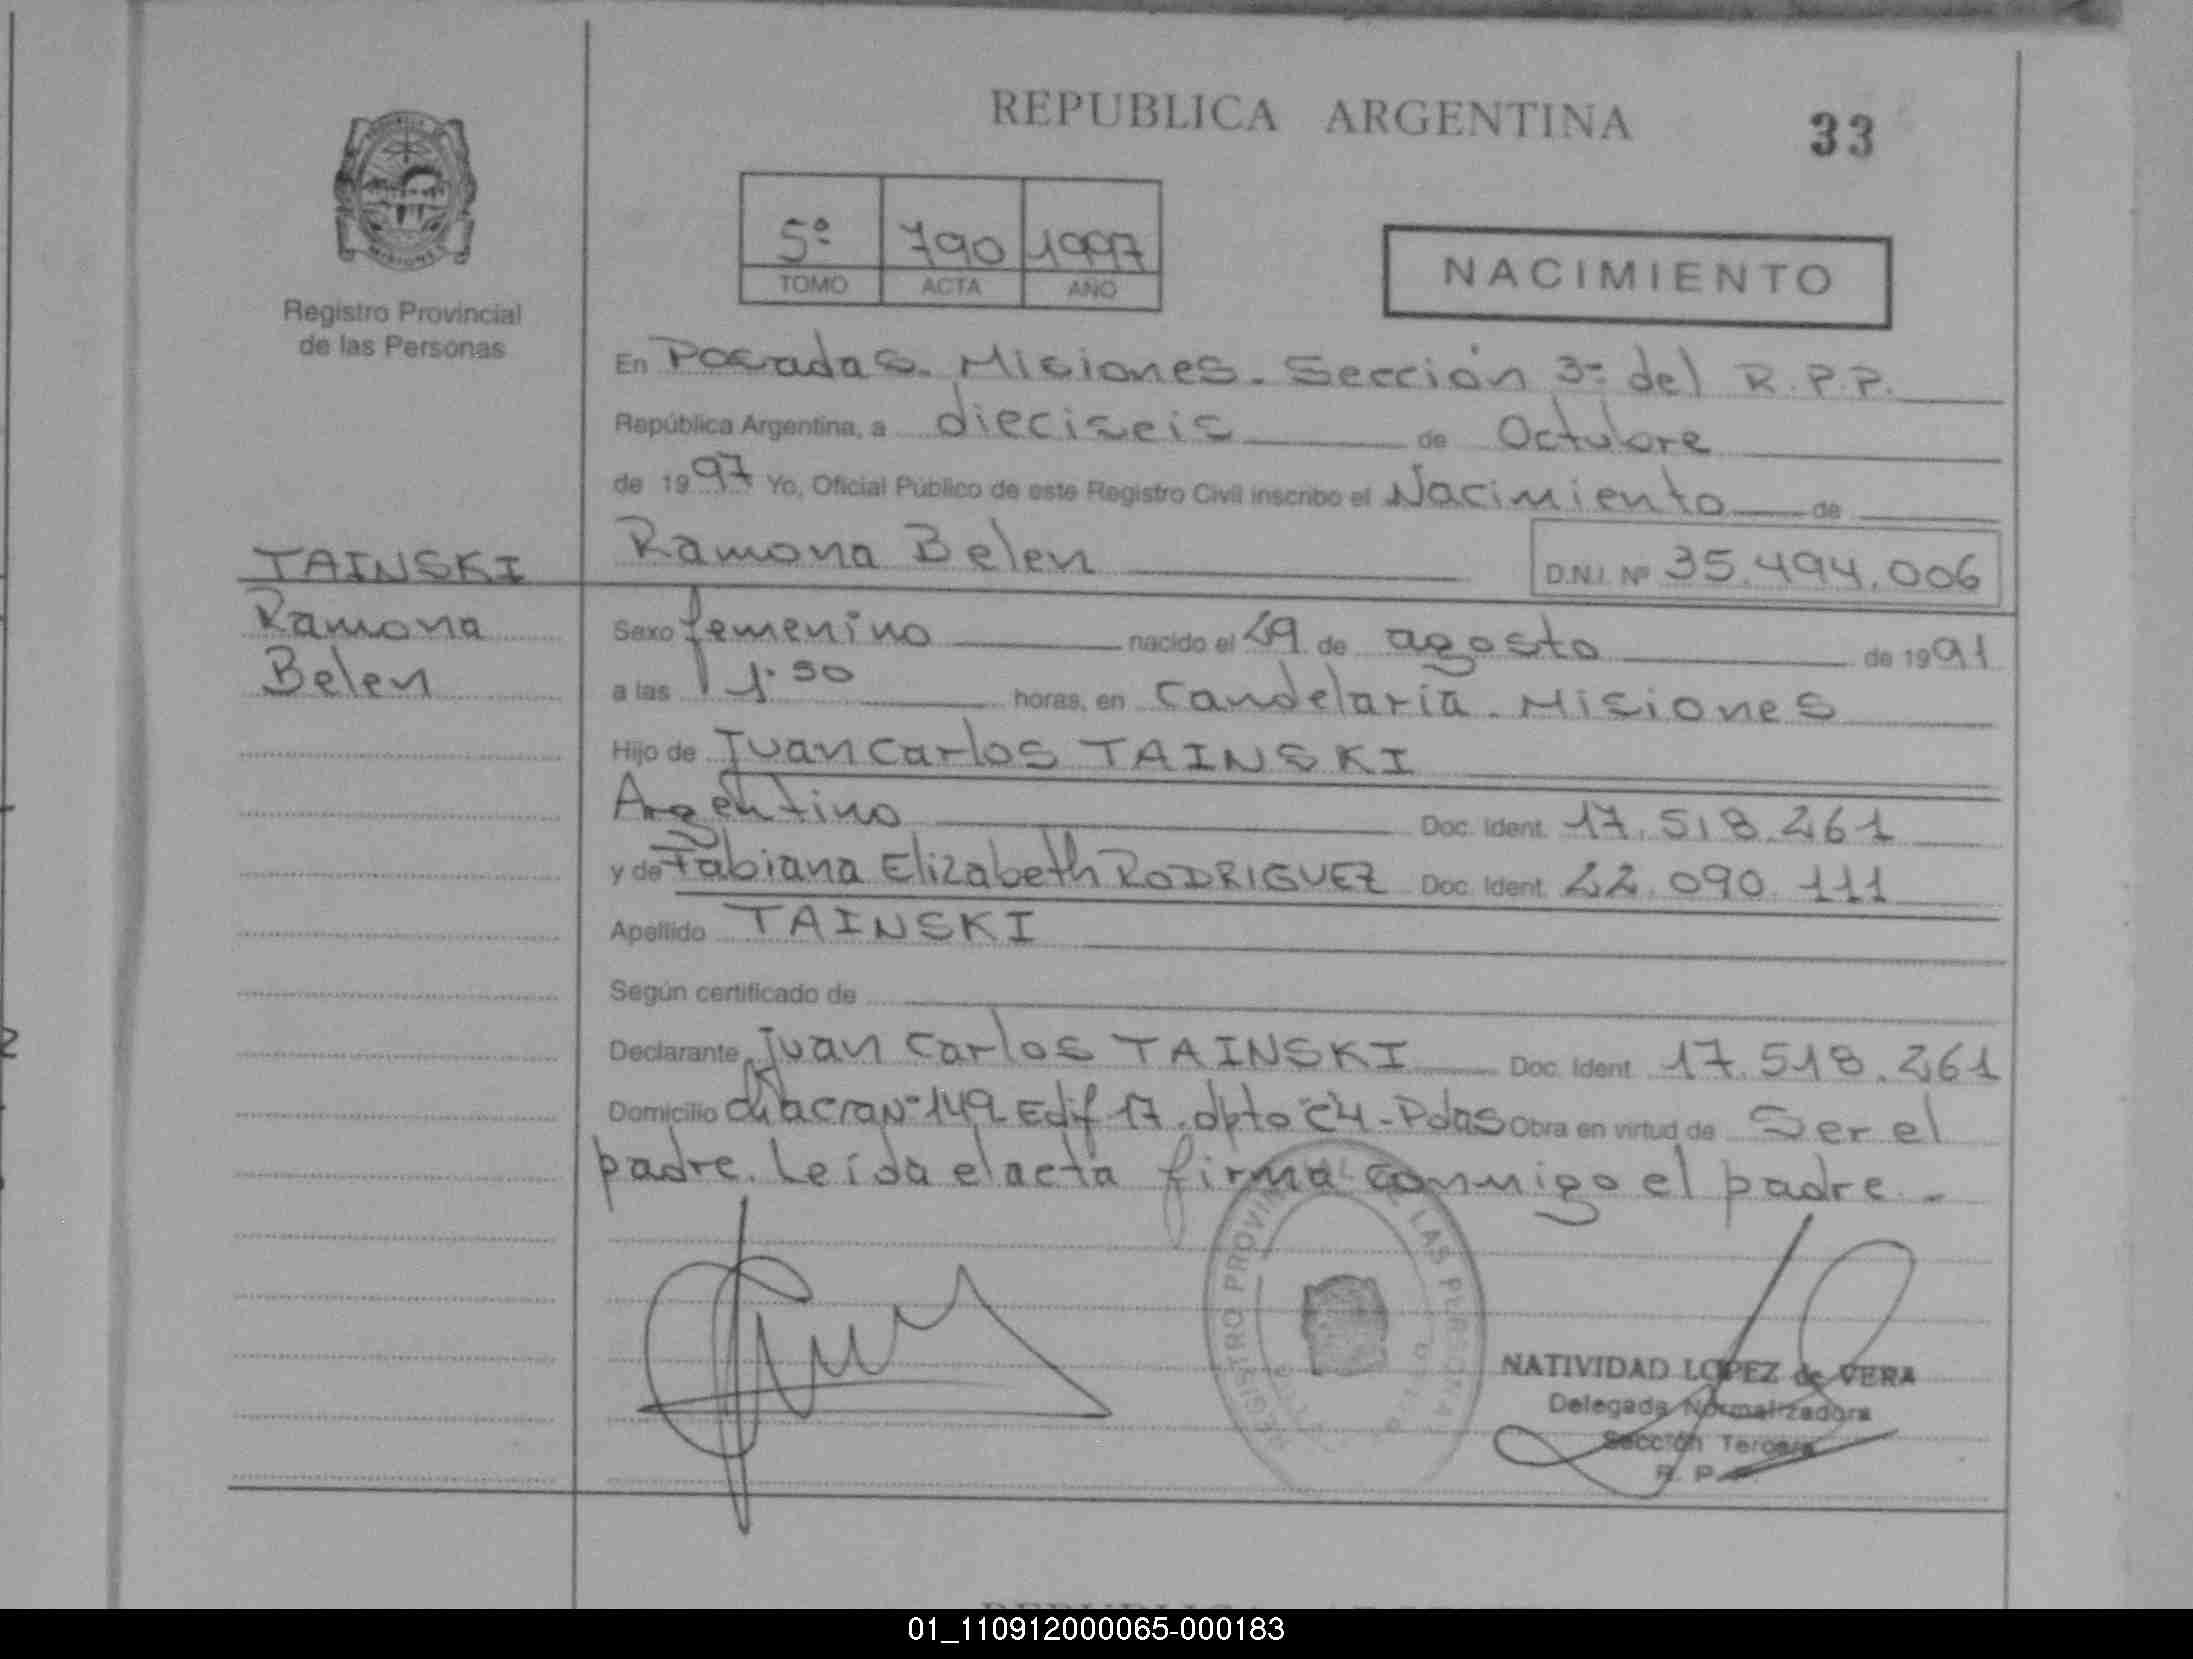 REPUBLICA ARGENTINA
33
5º 790 1997
TOMO ACTA AÑO
NACIMIENTO
Registro Provincial
de las Personas
En Posadas. Misiones. Sección 3ª del R.P.P.
República Argentina, a dieciseis de Octubre
de 1997 Yo, Oficial Público de este Registro Civil inscribo el Nacimiento de
TAINSKI
Ramona Belen D.N.I. Nº 35.494.006
Ramona
Belen
Sexo femenino nacido el 29 de agosto de 1991
a las horas, en Candelaria. Misiones
Hijo de Juan Carlos TAINSKI
Argentino Doc. Ident. 17.518.261
y de Fabiana Elizabeth RODRIGUEZ Doc. Ident. 22.090.111
Apellido TAINSKI
Según certificado de
Declarante Juan Carlos TAINSKI Doc. Ident. 17.518.261
Domicilio chacra Nº 149 Edif 17. dpto C4 - Pdas Obra en virtud de Ser el
padre. Leída el acta firma conmigo el padre.-
REGISTRO PROVINCIAL DE LAS PERSONAS
NATIVIDAD LOPEZ de VERA
Delegada Normalizadora
Sección Tercera
R. P. P.
01_110912000065-000183